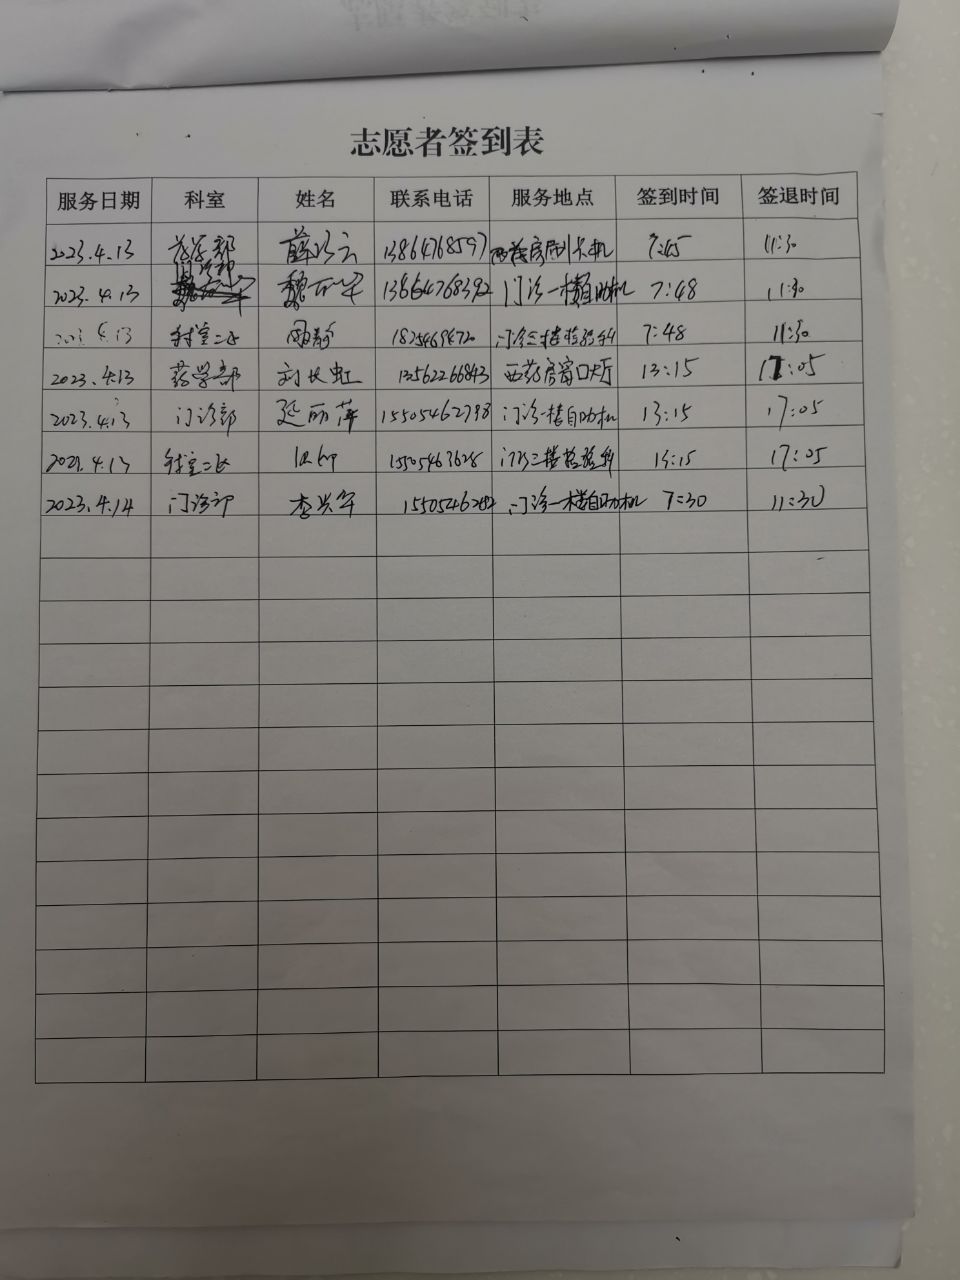 志愿者签到表
服务日期 科室 姓名 联系电话 服务地点 签到时间 签退时间
2023.4.13 药学部 薛 13864768597 西药房刷卡机 7:45 11:30
2023.4.13 门诊部 魏 13864768392 门诊一楼自助机 7:48 11:30
4.13 周静 门诊三楼检验科 7:48 11:30
2023.4.13 药学部 刘长虹 13562266843 西药房窗口大厅 13:15 17:05
2023.4.13 门诊部 延丽萍 15505462798 门诊一楼自助机 13:15 17:05
2023.4.13 15505463628 门诊三楼检验科 13:15 17:05
2023.4.14 门诊部 李兴军 门诊一楼自助机 7:30 11:30